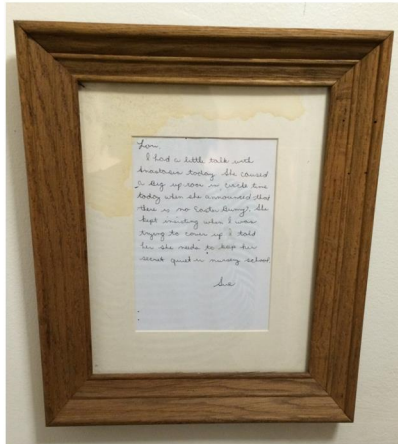 Lori
I had a little talk with
Anastasia today. She caused
a big up roar in circle time
today when she announced that
there is no Easter Bunny. She
kept insisting when I was
trying to cover up. I told
her she needs to keep her
secret quiet in nursery school.